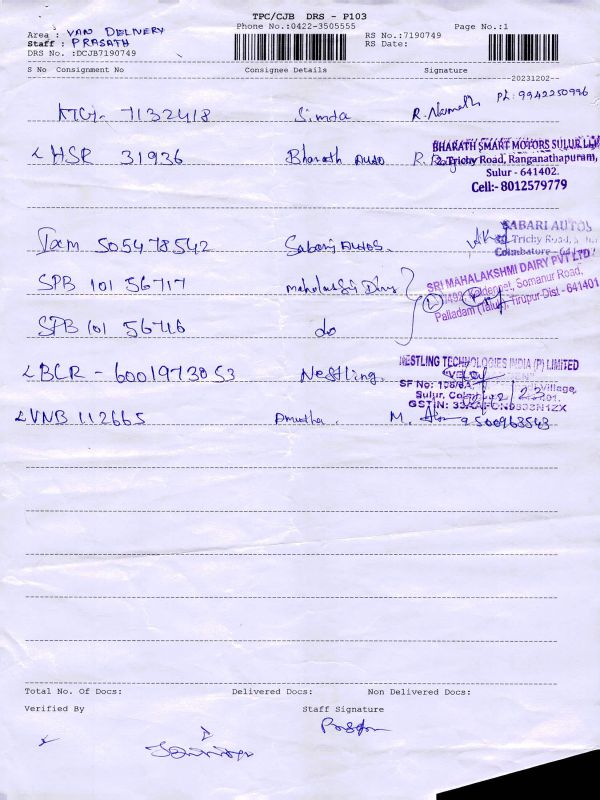 TPC/CJB DRS - P103
Area : VAN DELIVERY Phone No.:0422-3505555 RS No.:7190749 Page No.:1
Staff : PRASATH RS Date:
DRS No. :DCJB7190749
S No Consignment No Consignee Details Signature
20231202--
7132418 Simta R. Ph: 9942250996
HSR 31936 Bharath Auto R. BHARATH SMART MOTORS SULUR LLP
Trichy Road, Ranganathapuram,
Sulur - 641402.
Cell:- 8012579779
505478542 Sabari Autos. SABARI AUTOS
Trichy Road,
Coimbatore
SPB 101 56717 Mahalakshmi Dairy SRI MAHALAKSHMI DAIRY PVT LTD
Somanur Road,
SPB 101 56716 do Palladam (Taluk), Tirupur-Dist - 641401
BCR - 6001973053 Nestling. NESTLING TECHNOLOGIES INDIA (P) LIMITED
SF No: Village,
Sulur,
GSTIN:
VNB 112665 Amutha. M. 9500963543
Total No. Of Docs: Delivered Docs: Non Delivered Docs:
Verified By Staff Signature